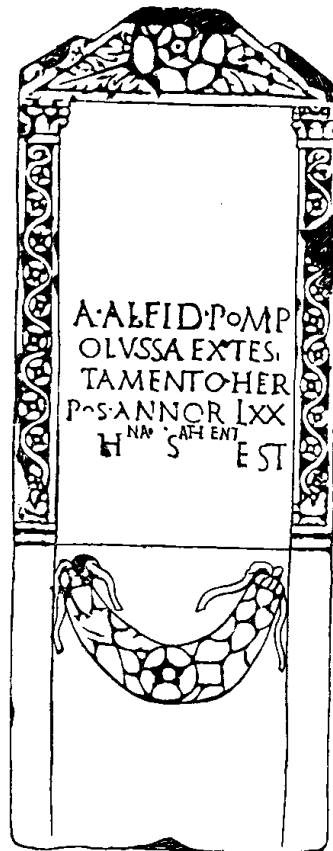 A·ALFID·POMP
OLVSSA EX·TES
TAMENTO·HER
POS·ANNOR LXX
NA· ATHENT
H S EST